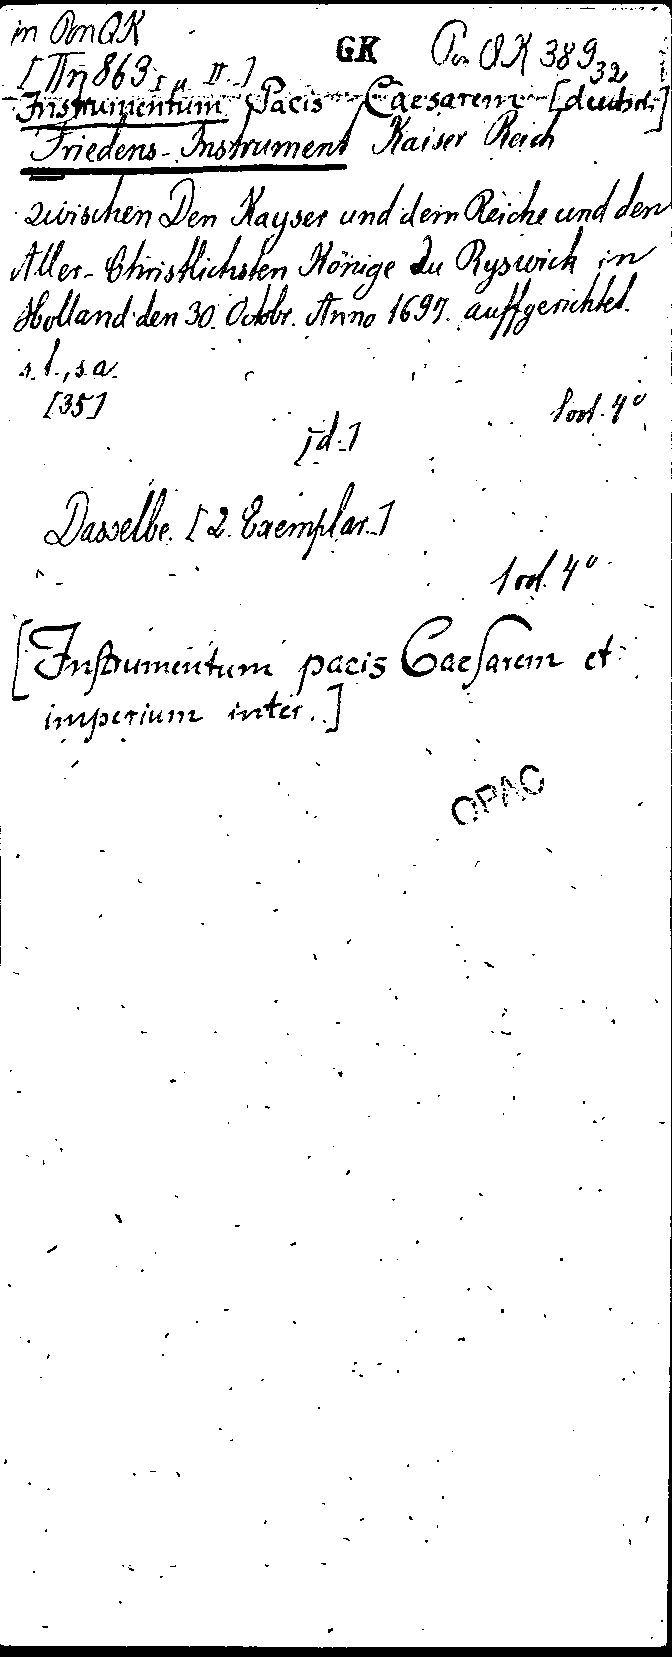 in Pon QK
GK Pon QK 389,32
[IIn 863 I u II.]
Instrumentum Pacis Caesarem [deutsch]
Friedens-Instrument Kaiser Reich
zwischen Den Kayser und dem Reiche und den
Aller-Christlichsten Könige zu Ryswick in
Holland den 30. Octobr. Anno 1697. auffgerichtet.
s.l., s.a.
[35]
4°
[d.]
Dasselbe. [2. Exemplar.]
4°
[Instrumentum pacis Caesarem et
imperium inter..]
OPAC